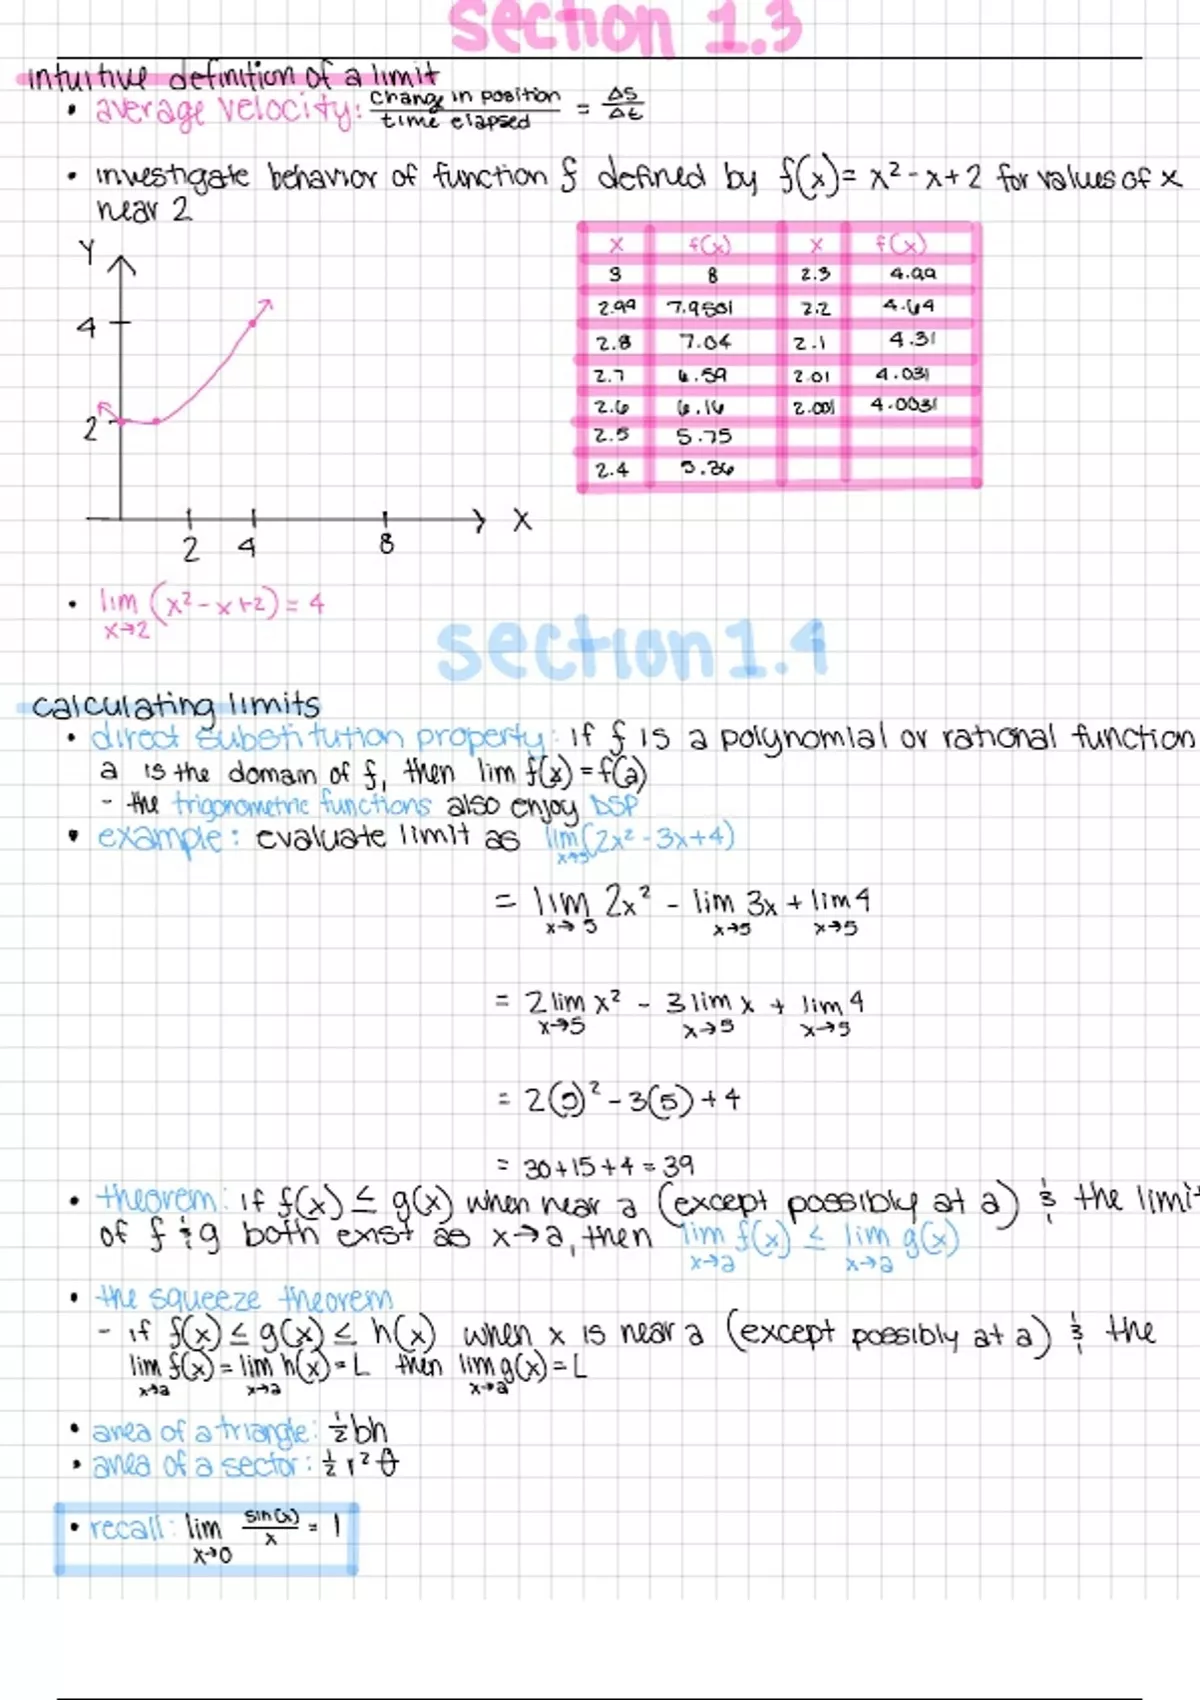 section 1.3
intuitive definition of a limit
• average velocity: change in position / time elapsed = Δs/Δt
• investigate behavior of function f defined by f(x) = x² - x + 2 for values of x
near 2
Y
4
2
2 4 8 X
x f(x) x f(x)
3 8 2.3 4.99
2.99 7.9501 2.2 4.64
2.8 7.04 2.1 4.31
2.7 6.59 2.01 4.031
2.6 6.16 2.001 4.0031
2.5 5.75
2.4 5.36
• lim (x² - x + 2) = 4
x→2
section 1.4
calculating limits
• direct substitution property: if f is a polynomial or rational function
a is the domain of f, then lim f(x) = f(a)
- the trigonometric functions also enjoy DSP
• example: evaluate limit as lim (2x² - 3x + 4)
x→5
= lim 2x² - lim 3x + lim 4
x→5 x→5 x→5
= 2 lim x² - 3 lim x + lim 4
x→5 x→5 x→5
= 2(5)² - 3(5) + 4
= 30 + 15 + 4 = 39
• theorem: if f(x) ≤ g(x) when near a (except possibly at a) & the limit
of f & g both exist as x→a, then lim f(x) ≤ lim g(x)
x→a x→a
• the squeeze theorem
- if f(x) ≤ g(x) ≤ h(x) when x is near a (except possibly at a) & the
lim f(x) = lim h(x) = L then lim g(x) = L
x→a x→a x→a
• area of a triangle: ½bh
• area of a sector: ½ r²θ
• recall: lim sin(x)/x = 1
x→0